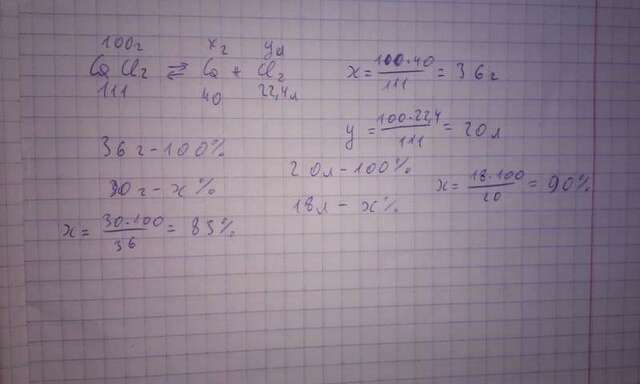 100г xг yл
CaCl₂ ⇄ Ca + Cl₂
111 40 22,4л
x = 100·40/111 = 36г
y = 100·22,4/111 = 20л
36г - 100%
30г - x%
x = 30·100/36 = 83%
20л - 100%
18л - x%
x = 18·100/20 = 90%